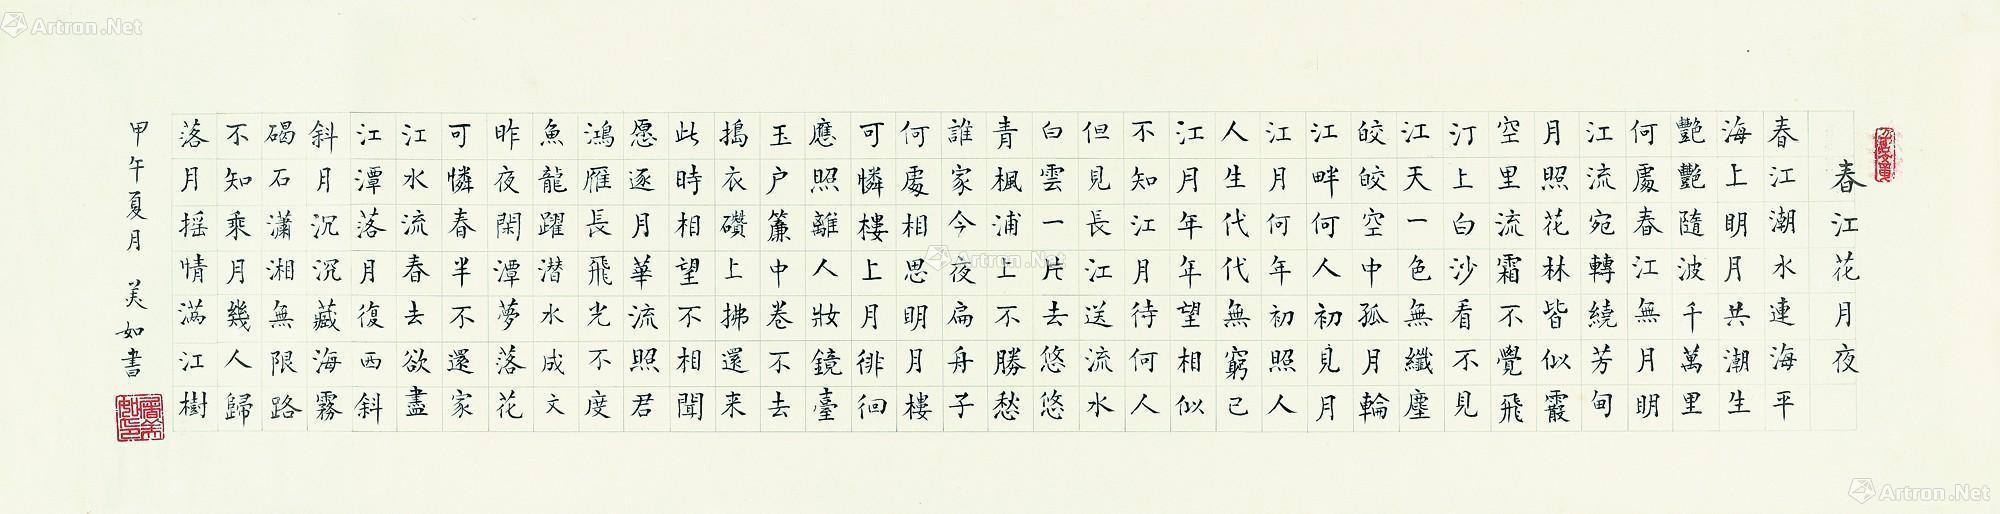 春江花月夜
春江潮水連海平
海上明月共潮生
艷艷隨波千萬里
何處春江無月明
江流宛轉繞芳甸
月照花林皆似霰
空里流霜不覺飛
汀上白沙看不見
江天一色無纖塵
皎皎空中孤月輪
江畔何人初見月
江月何年初照人
人生代代無窮已
江月年年望相似
不知江月待何人
但見長江送流水
白雲一片去悠悠
青楓浦上不勝愁
誰家今夜扁舟子
何處相思明月樓
可憐樓上月徘徊
應照離人妝鏡臺
玉户簾中卷不去
搗衣礩上拂還来
此時相望不相聞
愿逐月華流照君
鴻雁長飛光不度
魚龍躍潜水成文
昨夜閑潭夢落花
可憐春半不還家
江水流春去欲盡
江潭落月復西斜
斜月沉沉藏海霧
碣石瀟湘無限路
不知乘月幾人歸
落月摇情滿江樹
甲午夏月 美如書
Artron.Net
Artron.Net
Artron.Net
Artron.Net